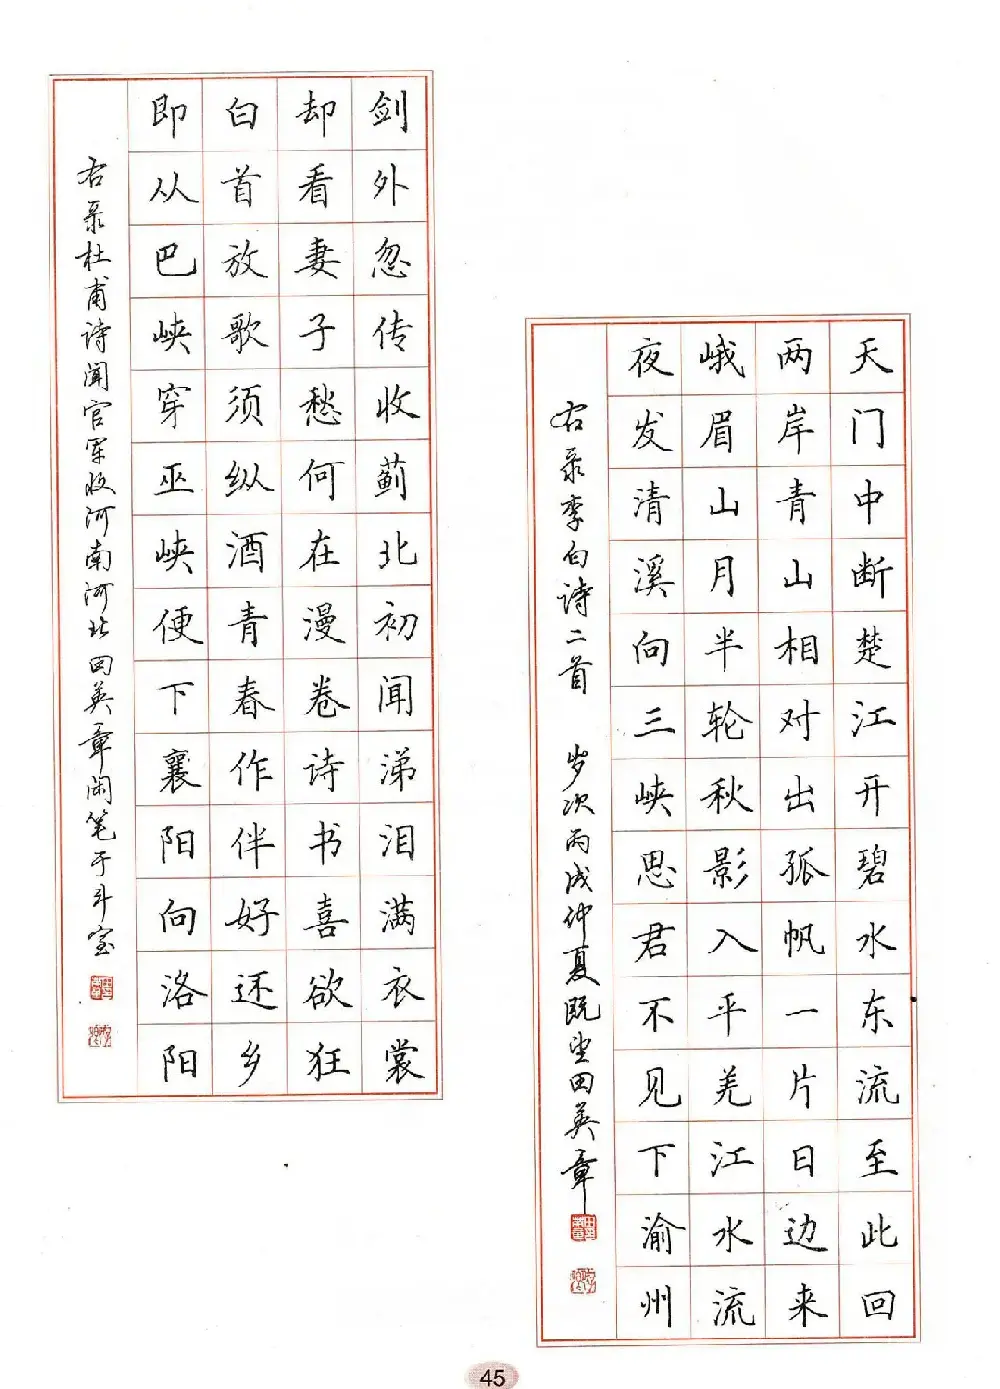 天门中断楚江开碧水东流至此回
两岸青山相对出孤帆一片日边来
峨眉山月半轮秋影入平羌江水流
夜发清溪向三峡思君不见下渝州
右录李白诗二首 岁次丙戌仲夏既望田英章
剑外忽传收蓟北初闻涕泪满衣裳
却看妻子愁何在漫卷诗书喜欲狂
白首放歌须纵酒青春作伴好还乡
即从巴峡穿巫峡便下襄阳向洛阳
右录杜甫诗闻官军收河南河北田英章闲笔于斗室
45